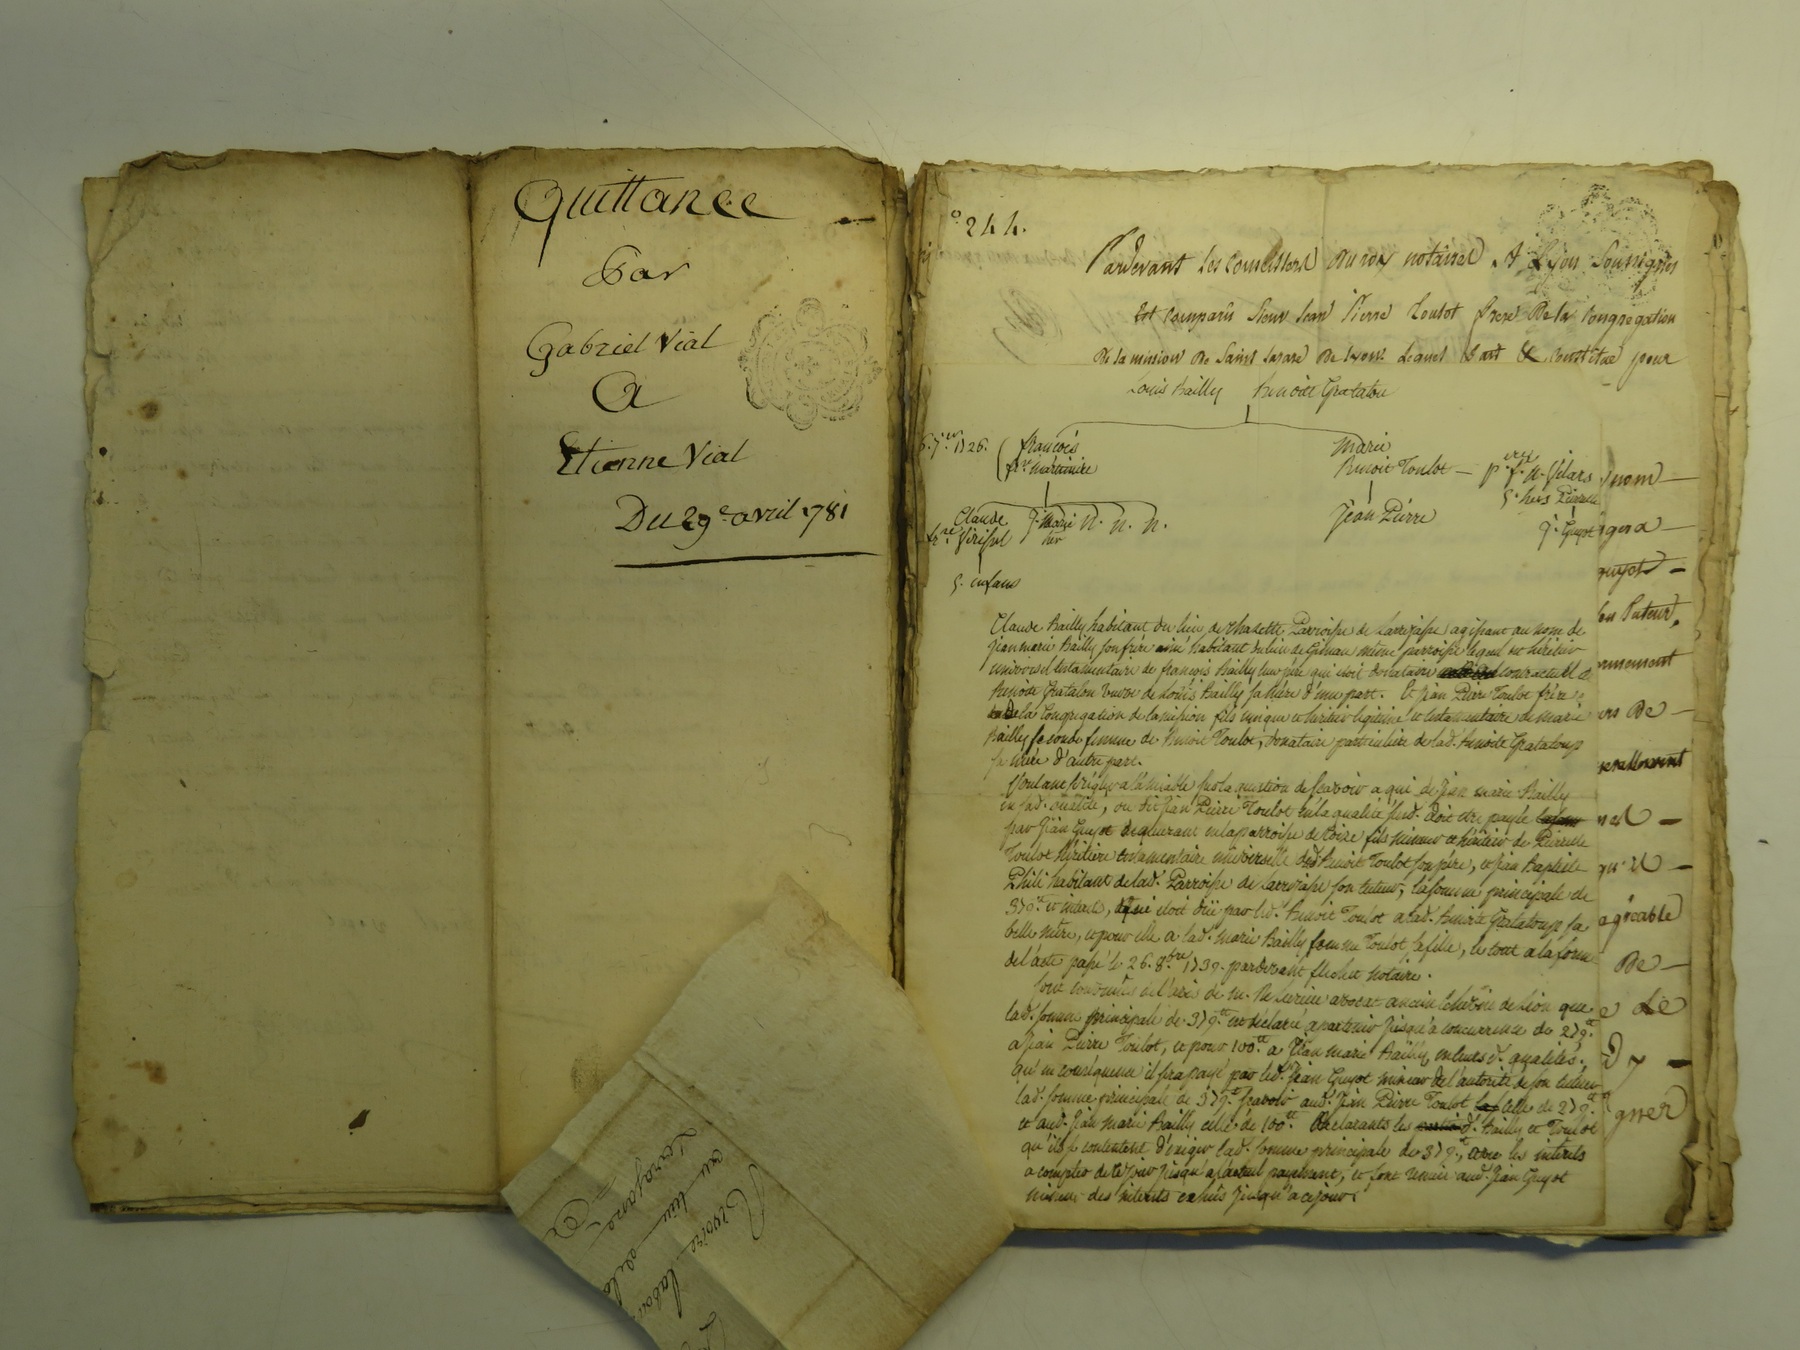 Quittance
Par
Gabriel Vial
A
Etienne Vial
Du 29e avril 1781
244.
Pardevant Les Conseillers du roy notaires A Lyon Soussignés
Est Comparu Sieur Jean Pierre Toulot frere De la Congregation
De la mission De Saint Lazare De Lyon Lequel fait & Constitue pour
Louis Bailly Benoite Gratalou
1726. françois
Marie
Benoit Toulot
Claude
J. Marie N. N. N.
her
Jean Pierre
J. Guyot
5. enfans
Claude Bailly habitant du lieu de Parroisse de Larrajasse agissant au nom de
Jean marie Bailly son frère ainé habitant du lieu de même parroisse lequel est héritier
universel testamentaire de françois Bailly leur père qui étoit donataire contractuel de
Benoite Gratalou veuve de Louis Bailly sa Mère d'une part. Et Jean Pierre Toulot frère
de la Congregation de la mission fils unique et héritier légitime et testamentaire de marie
Bailly seconde femme de Benoit Toulot, donataire particulière de lad. Benoite Grataloup
sa mère d'autre part.
Voulant régler à l'amiable sur la question de sçavoir a qui de Jean marie Bailly
en sad. qualité, ou dud. Jean Pierre Toulot en la qualité susd. doit etre payée
par Jean Guyot demeurant en la parroisse de fils mineur et héritier de Pierrette
Toulot héritière testamentaire universelle dud. Benoit Toulot son père, et Jean Baptiste
habitant de lad. Parroisse de Larrajasse son tuteur, la somme principale de
379 tt et intérets, qui étoit düe par led. Benoit Toulot a lad. Benoite Grataloup sa
belle mère, et pour elle a lad. marie Bailly femme Toulot sa fille, le tout a la forme
de l'acte passé le 26. 8bre 1739. pardevant flechet notaire.
Sont convenus de l'avis de m. avocat ancien Echevin de Lion que
lad. somme principale de 379 tt est déclarée apartenir jusqu'a concurrence de 279 tt
a Jean Pierre Toulot, et pour 100 tt a Jean marie Bailly, en leurs d. qualités.
qu'en conséquence il sera payé par led. Jean Guyot mineur de l'autorité de son tuteur
lad. somme principale de 379 tt sçavoir aud. Jean Pierre Toulot celle de 279 tt
et aud. Jean marie Bailly celle de 100 tt. Déclarants les d. Bailly et Toulot
qu'ils se contentent d'exiger lad. somme principale de 379 tt, avec les intérets
a compter de ce jour jusqu'a payement, et font remise aud. Jean Guyot
mineur des intérets échus jusqu'a ce jour.
nom
gera
guyot
Tuteur,
De
agréable
De
De